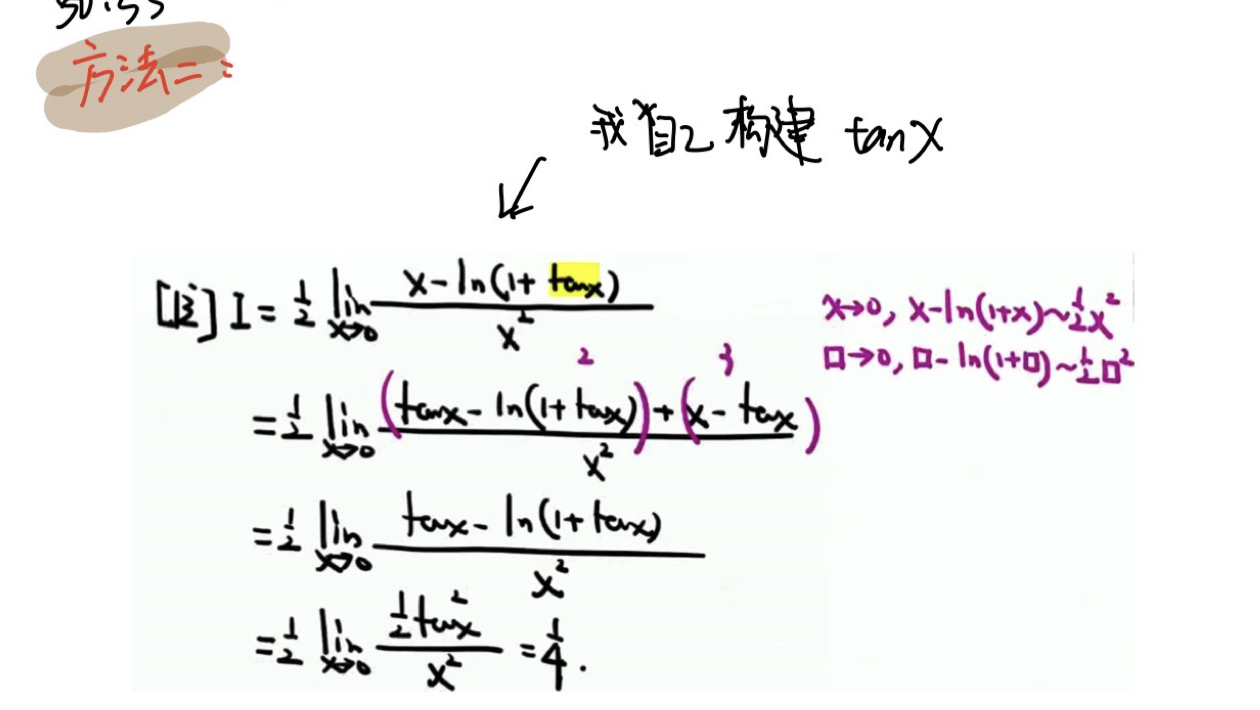 方法二:
我自己构建 tanx
[法2] I = 1/2 lim x→0 (x - ln(1+tanx))/x²
x→0, x-ln(1+x)~1/2x²
□→0, □-ln(1+□)~1/2□²
2 3
= 1/2 lim x→0 ((tanx - ln(1+tanx)) + (x - tanx))/x²
= 1/2 lim x→0 (tanx - ln(1+tanx))/x²
= 1/2 lim x→0 (1/2 tan²x)/x² = 1/4.